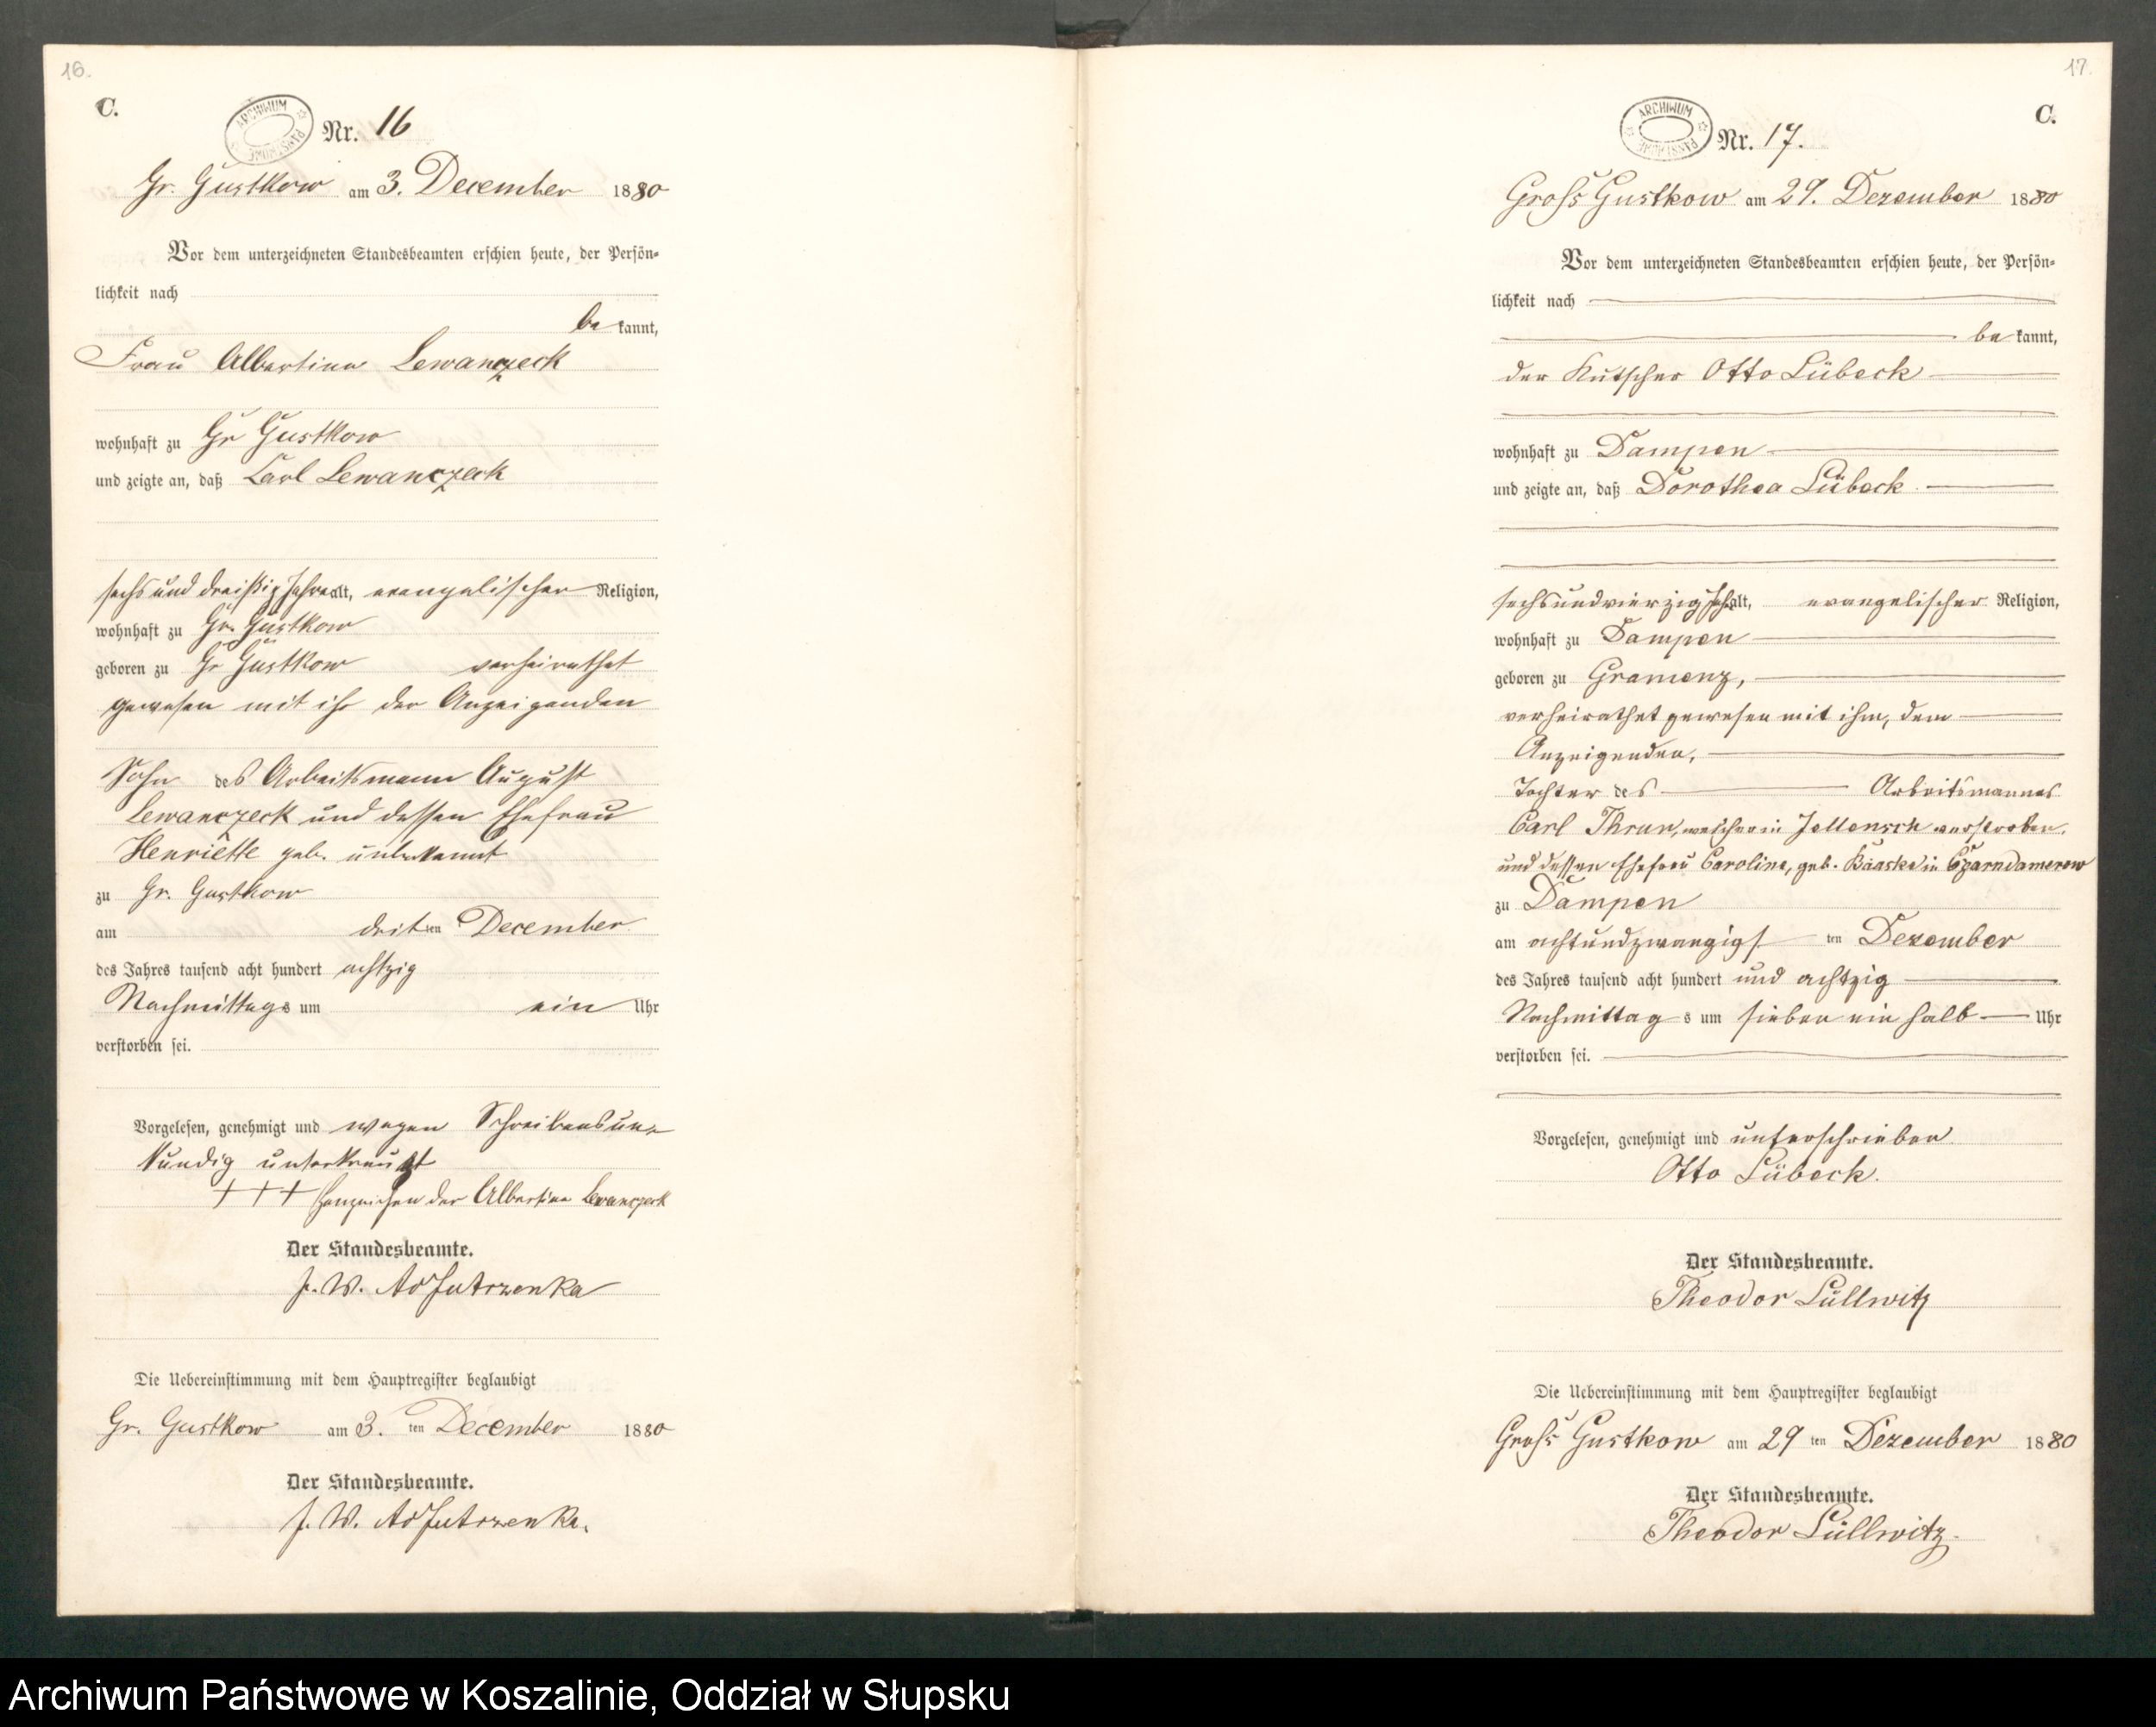 16.
C.
ARCHIWUM PAŃSTWOWE
Nr. 16
Gr. Gustkow am 3. December 1880
Vor dem unterzeichneten Standesbeamten erschien heute, der Persön-
lichkeit nach
be kannt,
Frau Albertine Lewanczeck
wohnhaft zu Gr Gustkow
und zeigte an, daß Carl Lewanczeck
sechs und dreißig Jahre alt, evangelischer Religion,
wohnhaft zu Gr. Gustkow
geboren zu Gr Gustkow verheirathet
gewesen mit ihr der Anzeigenden
Sohn des Arbeitsmann August
Lewanczeck und dessen Ehefrau
Henriette geb. unbekannt
zu Gr. Gustkow
am dritten December
des Jahres tausend acht hundert achtzig
Nachmittags um ein Uhr
verstorben sei.
Vorgelesen, genehmigt und wegen Schreibensun-
kundig unterkreuzt
+ + + Handzeichen der Albertine Lewanczeck
Der Standesbeamte.
Die Uebereinstimmung mit dem Hauptregister beglaubigt
Gr. Gustkow am 3. ten December 1880
Der Standesbeamte.
17.
C.
ARCHIWUM PAŃSTWOWE
Nr. 17.
Gross Gustkow am 29. Dezember 1880
Vor dem unterzeichneten Standesbeamten erschien heute, der Persön-
lichkeit nach
be kannt,
der Kutscher Otto Lübeck
wohnhaft zu Dampen
und zeigte an, daß Dorothea Lübeck
sechsundvierzig Jah. alt, evangelischer Religion,
wohnhaft zu Dampen
geboren zu Gramenz,
verheirathet gewesen mit ihm, dem
Anzeigenden,
Tochter des Arbeitsmannes
Carl Thrun, welcher in Jellensch verstorben,
und dessen Ehefrau Caroline, geb. in Czarndamerow
zu Dampen
am achtundzwanzigst ten Dezember
des Jahres tausend acht hundert und achtzig
Nachmittag s um sieben ein halb Uhr
verstorben sei.
Vorgelesen, genehmigt und unterschrieben
Otto Lübeck.
Der Standesbeamte.
Theodor Lüllwitz
Die Uebereinstimmung mit dem Hauptregister beglaubigt
Gross Gustkow am 29 ten Dezember 1880
Der Standesbeamte.
Theodor Lüllwitz.
Archiwum Państwowe w Koszalinie, Oddział w Słupsku